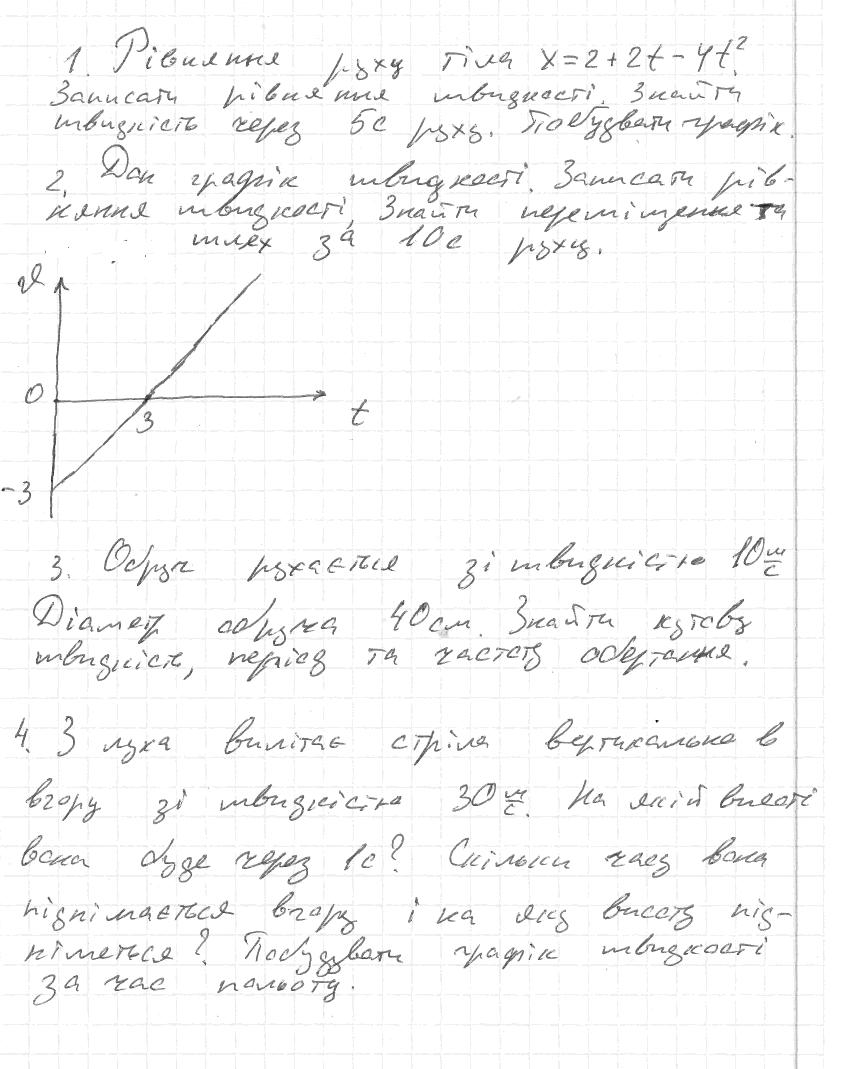 1. Рівняння руху тіла x=2+2t-4t².
Записати рівняння швидкості. Знайти
швидкість через 5с руху. Побудувати графік.
2. Дан графік швидкості. Записати рів-
няння швидкості, Знайти переміщення та
шлях за 10с руху.
v
0
3
t
-3
3. Обруч рухається зі швидкістю 10 м/с
Діаметр обруча 40см. Знайти кутову
швидкість, період та частоту обертання.
4. З лука вилітає стріла вертикально в
вгору зі швидкістю 30 м/с. На якій висоті
вона буде через 1с? Скільки часу вона
піднімається вгору і на яку висоту під-
німеться? Побудувати графік швидкості
за час польоту.